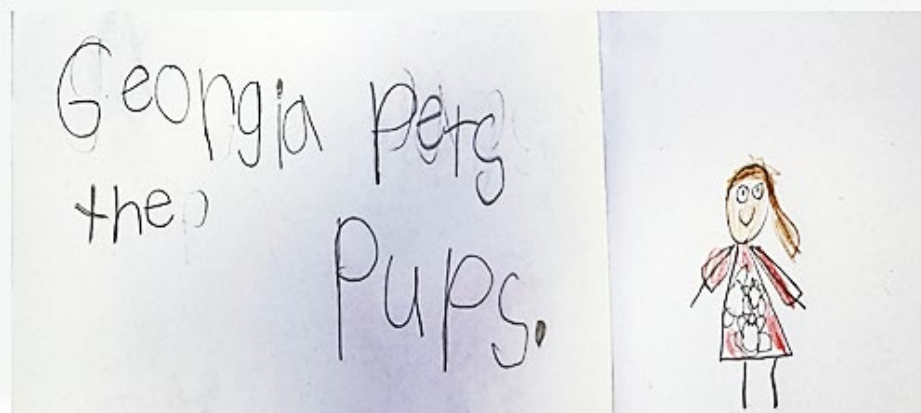 Georgia pets
the
Pups.